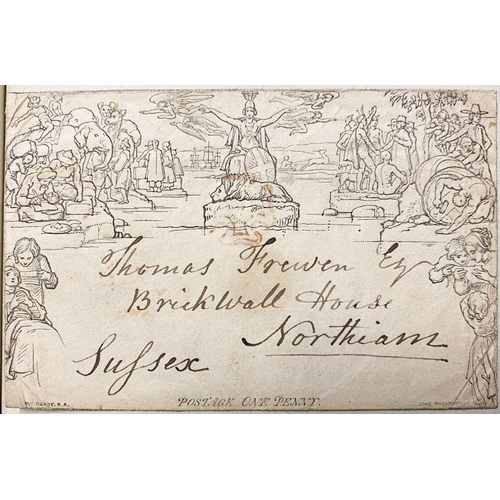 Thomas Frewen Esq
Brickwall House
Northiam
Sussex
POSTAGE ONE PENNY.
W. MULREADY. R.A.
JOHN THOMPSON